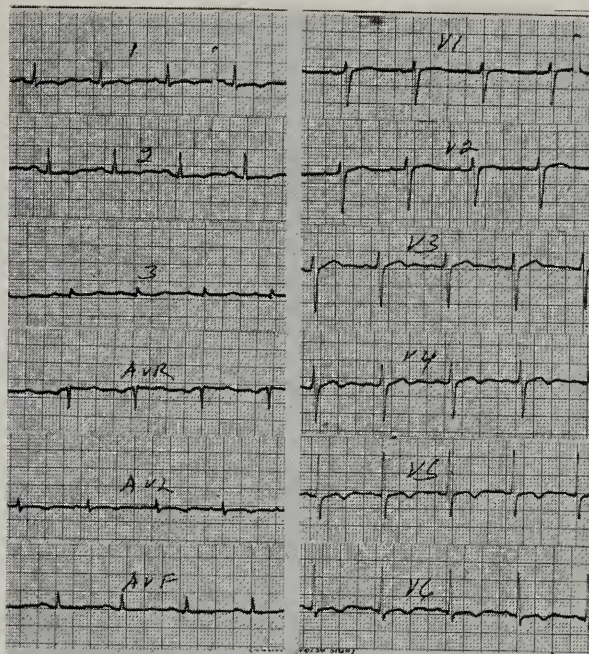 1
2
3
AVR
AVL
AVF
V1
V2
V3
V4
V5
V6